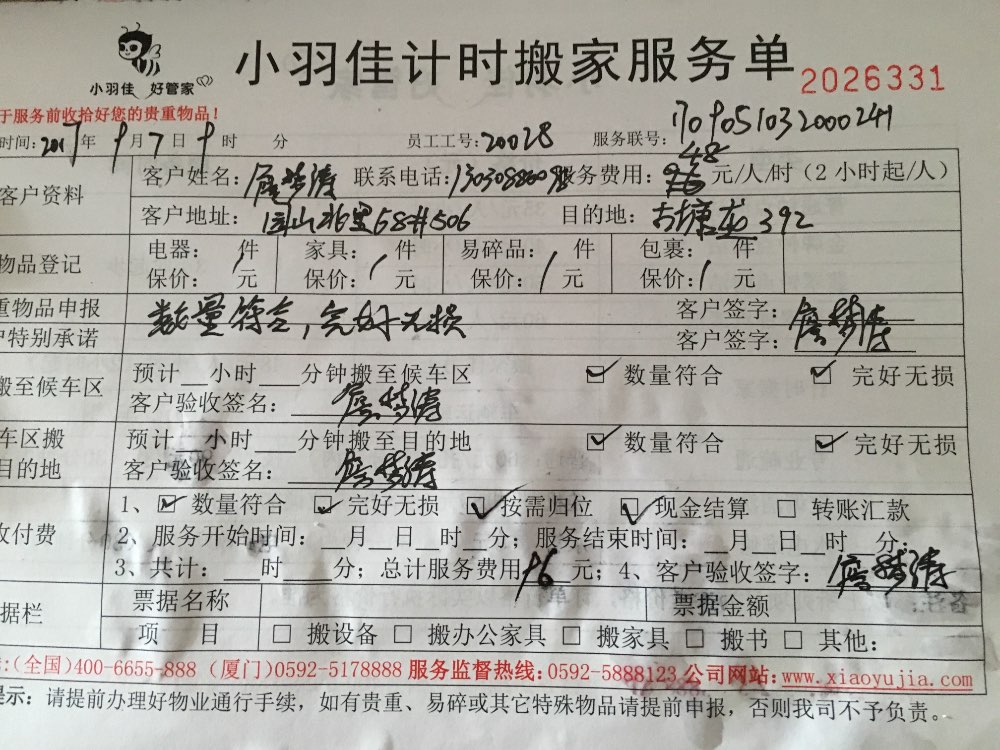 小羽佳 好管家
小羽佳计时搬家服务单 2026331
于服务前收拾好您的贵重物品！
时间：2017年9月7日9时 分 员工工号：20028 服务联号：1709051032000241
客户资料 客户姓名： 联系电话： 服务费用：48 元/人/时（2小时起/人）
客户地址： 山北里68#506 目的地：古塘 392
物品登记 电器：/件 家具：/件 易碎品：/件 包裹：/件
保价：元 保价：元 保价：元 保价：元
重物品申报 数量符合，完好无损 客户签字：
户特别承诺 客户签字：
搬至候车区 预计__小时___分钟搬至候车区 ☑ 数量符合 ☑ 完好无损
客户验收签名：
车区搬 预计__小时___分钟搬至目的地 ☑ 数量符合 ☑ 完好无损
目的地 客户验收签名：
收付费 1、☑ 数量符合 ☑ 完好无损 ☑ 按需归位 ☑ 现金结算 □ 转账汇款
2、服务开始时间：__月__日__时__分；服务结束时间：__月__日__时 分；
3、共计：___时___分；总计服务费用96元；4、客户验收签字：
据栏 票据名称 票据金额
项 目 □ 搬设备 □ 搬办公家具 □ 搬家具 □ 搬书 □ 其他：
：(全国)400-6655-888 (厦门)0592-5178888 服务监督热线：0592-5888123 公司网站：www.xiaoyujia.com
提示：请提前办理好物业通行手续，如有贵重、易碎或其它特殊物品请提前申报，否则我司不予负责。